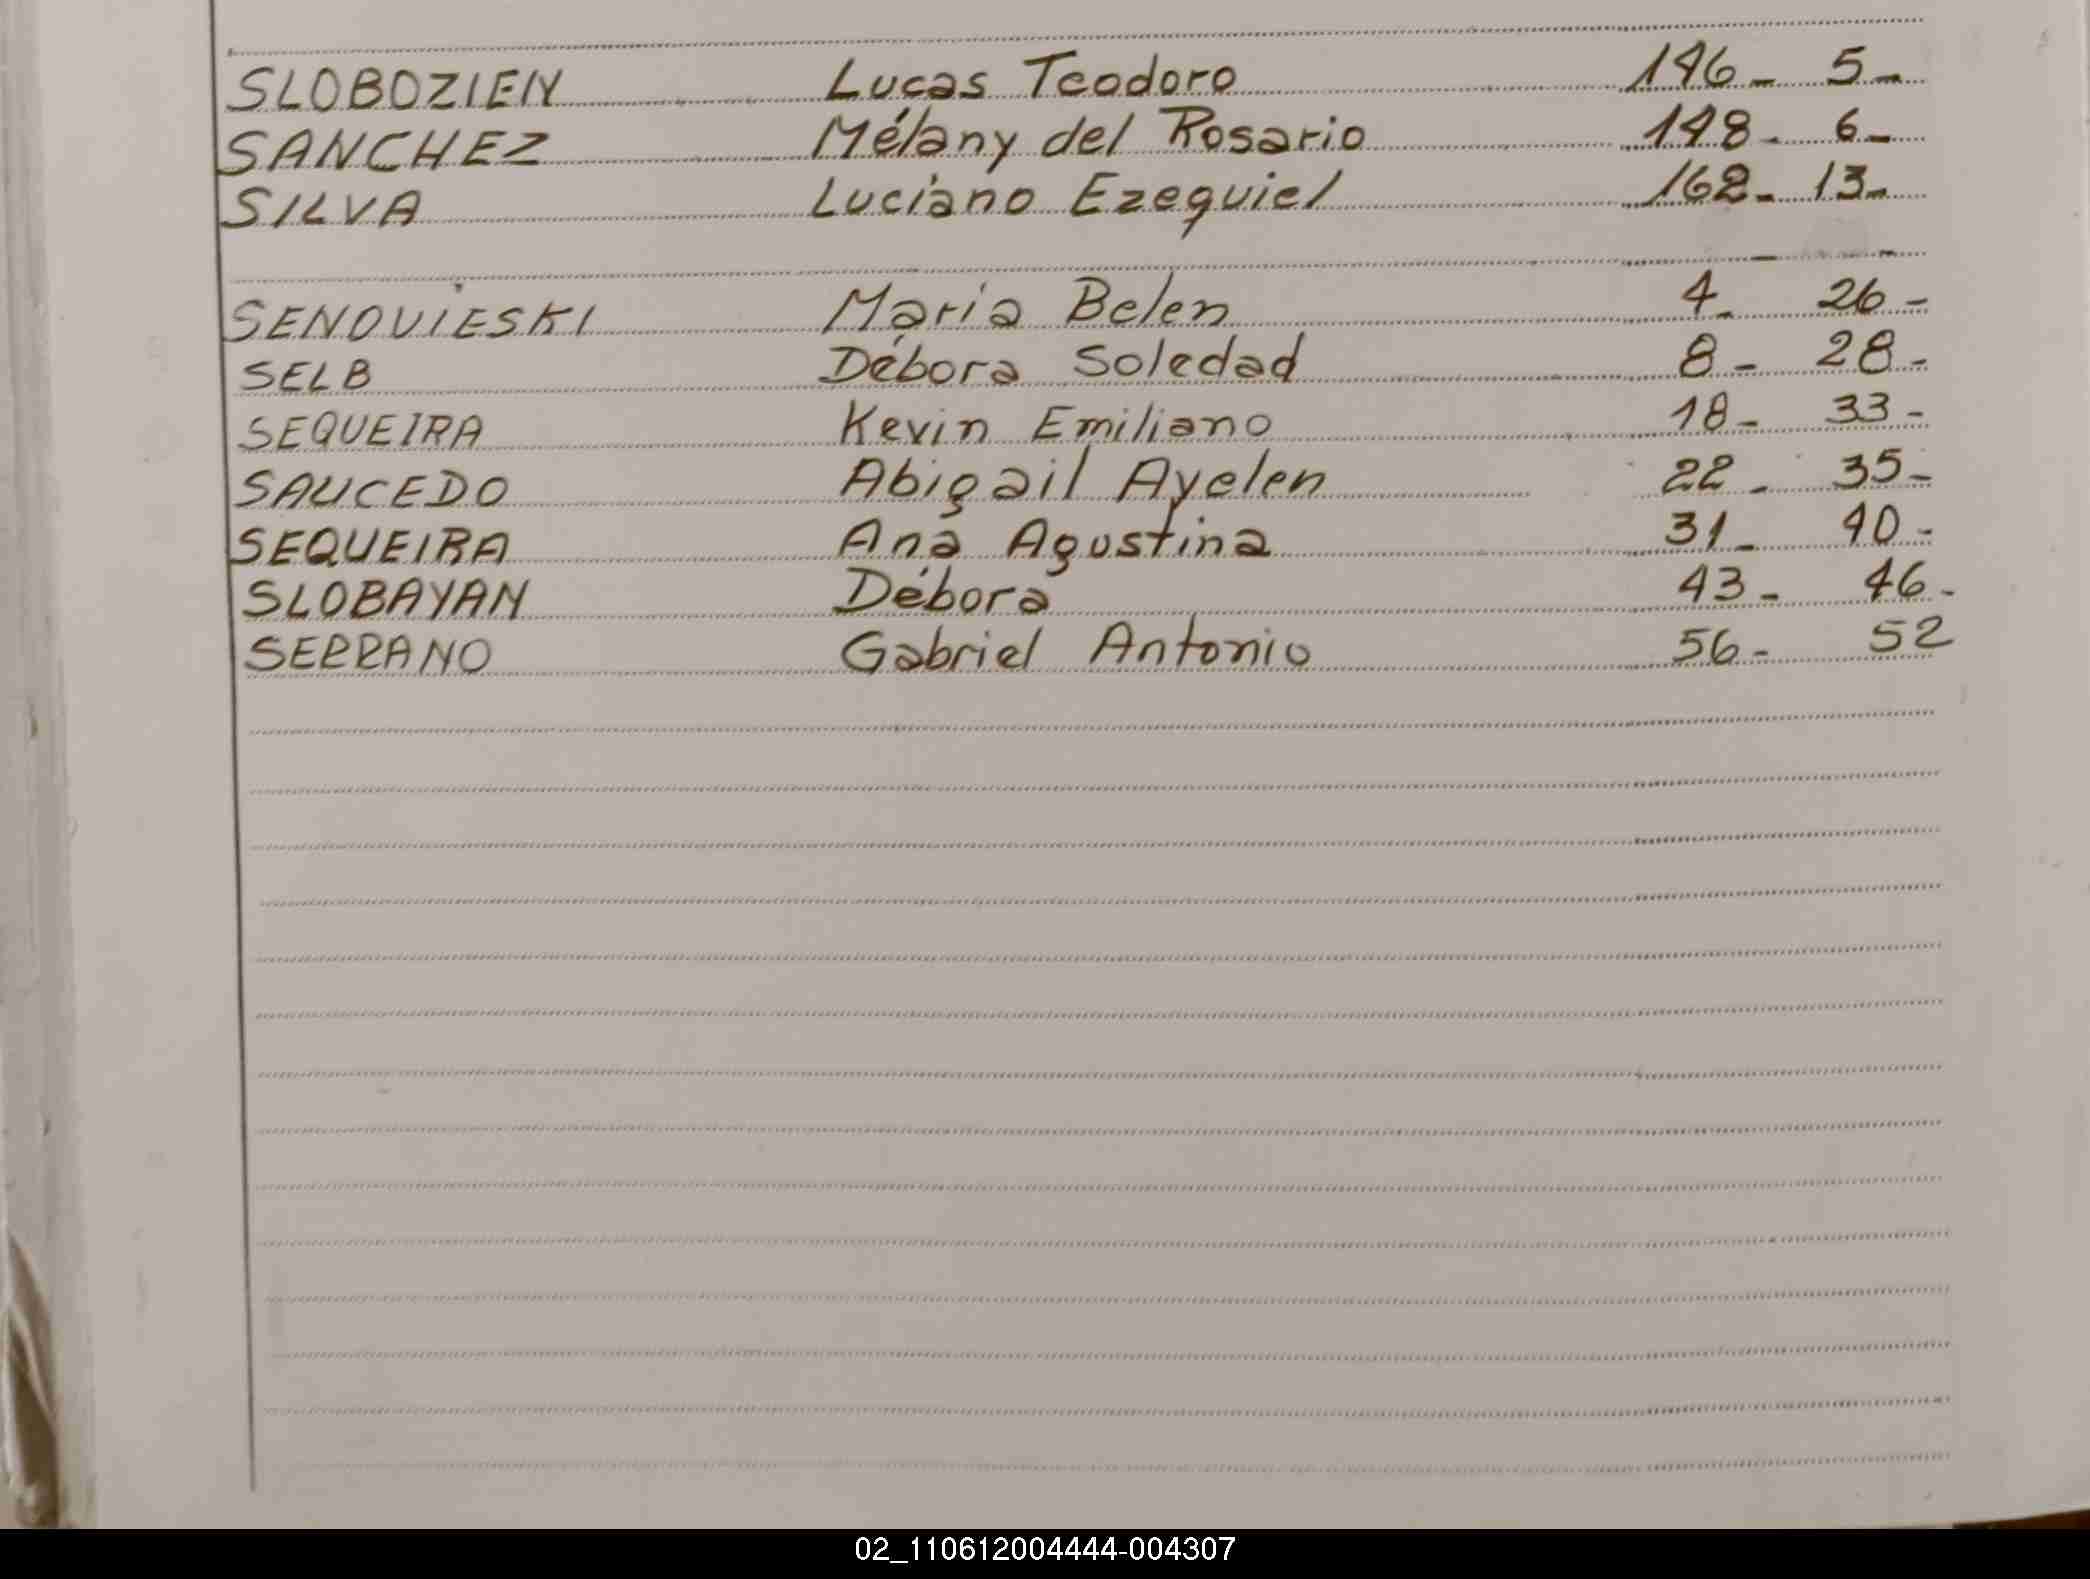 SLOBOZIEN Lucas Teodoro 146- 5-
SANCHEZ Mélany del Rosario 148- 6-
SILVA Luciano Ezequiel 162- 13-
SENOVIESKI Maria Belen 4- 26-
SELB Débora Soledad 8- 28-
SEQUEIRA Kevin Emiliano 18- 33-
SAUCEDO Abigail Ayelen 22- 35-
SEQUEIRA Ana Agustina 31- 40-
SLOBAYAN Débora 43- 46-
SERRANO Gabriel Antonio 56- 52
02_110612004444-004307